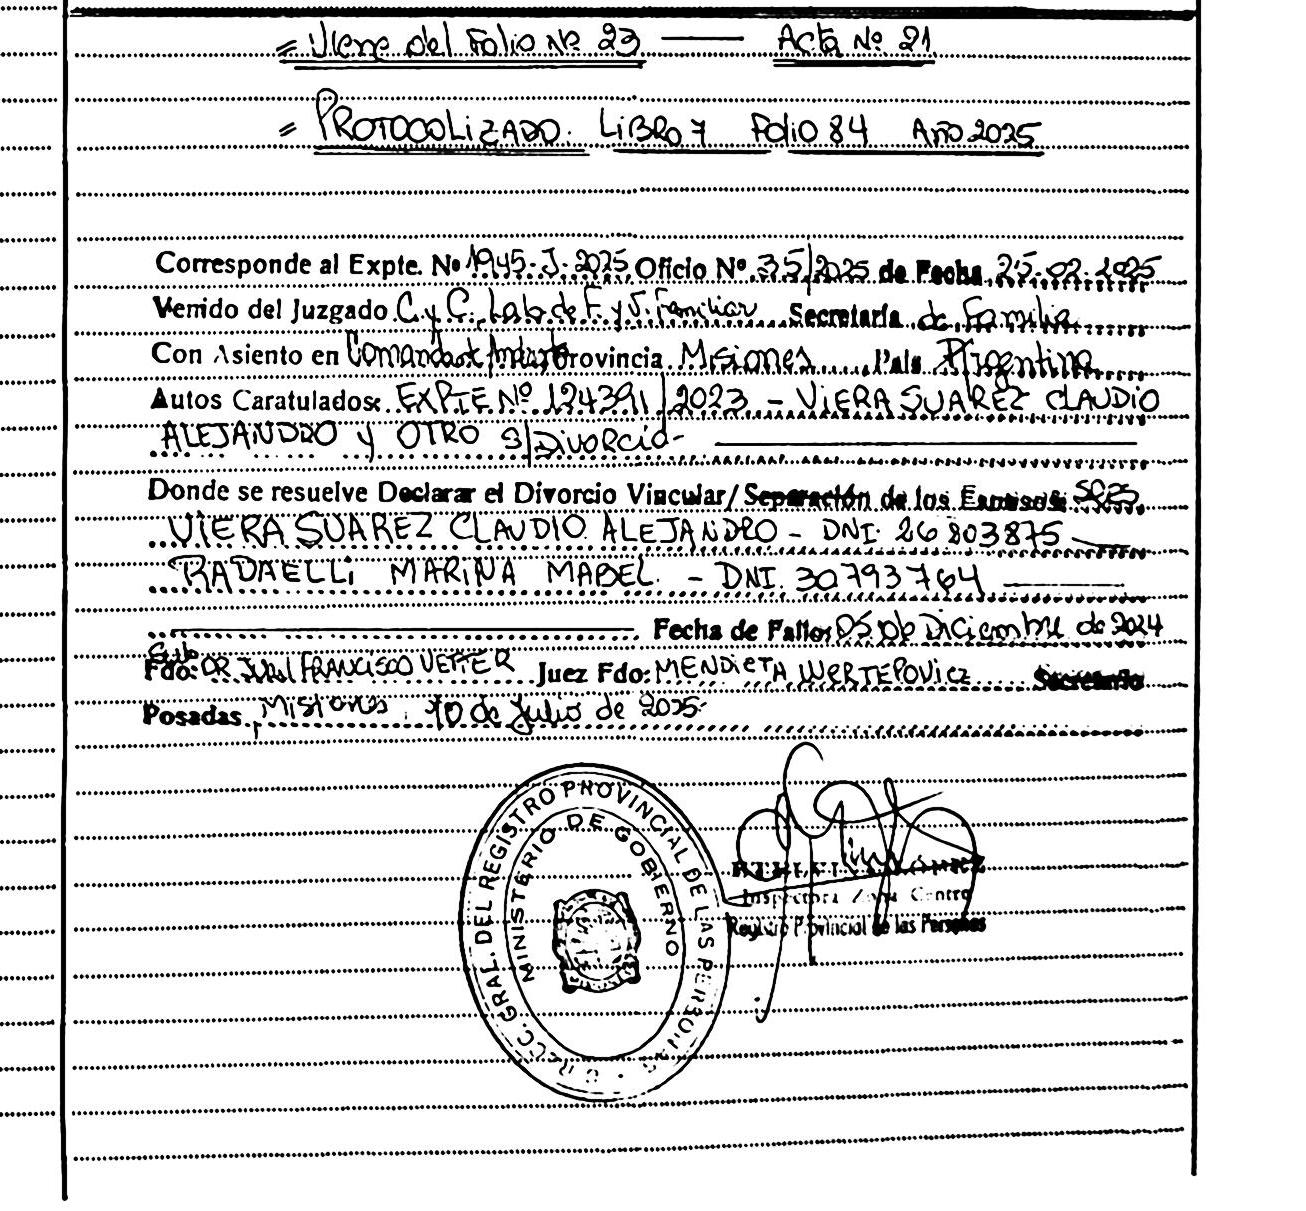 = Viene del Folio Nº 23 —— Acta Nº 21
= PROTOCOLIZADO. LIBRO 7 Folio 84 Año 2025
Corresponde al Expte. Nº 1945-J-2025 Oficio Nº 35/2025 de Fecha 25-02-2025
Venido del Juzgado C. y C. Lab. de F. y V. Familiar Secretaría de Familia
Con Asiento en Comandante Provincia Misiones País Argentina
Autos Caratulados: EXPTE Nº 124391/2023 - VIERA SUAREZ CLAUDIO
ALEJANDRO y OTRO S/Divorcio-
Donde se resuelve Declarar el Divorcio Vincular/Separación de los Esposos: SRES.
VIERA SUAREZ CLAUDIO ALEJANDRO - DNI: 26803875
RADAELLi MARINA MABEL. - DNI. 30793764
Fecha de Fallo: 05 de Diciembre de 2024
Fdo: DR FRANCISCO VETTER Juez Fdo: MENDIETA WERTEPOVICZ Secretario
Posadas, Misiones, 10 de Julio de 2025-
DIRECC. GRAL. DEL REGISTRO PROVINCIAL DE LAS PERSONAS
MINISTERIO DE GOBIERNO
Inspectora Zona Centro
Registro Provincial de las Personas